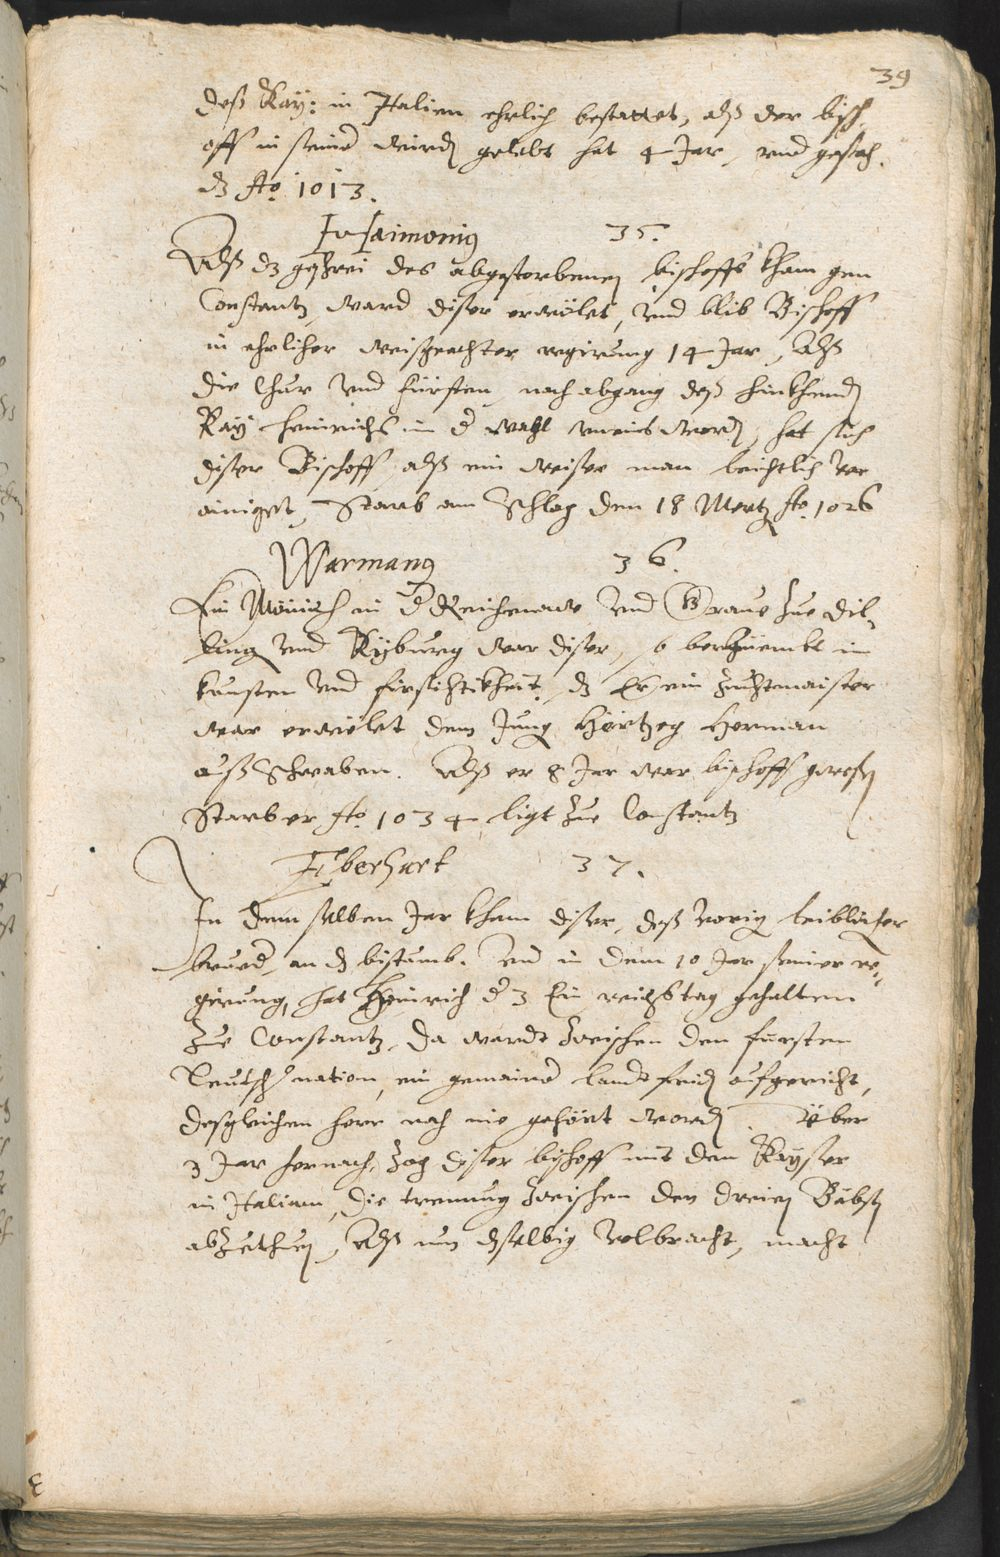 39
deß Kay: in Italien ehrlich bestattet, alß der bisch,
off in seine wird gelebt hat 4 Jar, vnd geschah.
dz Ao 1013.
Haimonig 35.
Alß dz geschrei des abgestorbenen bischoffs kham gen
Constantz, ward diser erwölet, vnd blib Bischoff
in ehrlicher weißgeachter regirung 14 Jar, Alß
die Chur vnd fürsten, nach abgang deß hinkhend
Kay Heinrichs in d wahl vneins word, hat sich
diser Bischoff, alß ein weiser man leichtlich ver
ainiget, Starb am Schlag den 18 Mertz Ao 1026
Warmang 36.
Ein Mönich in d Reichenaw vnd Graue zue Dil,
ling vnd Kyburg war diser, so berhüembt in
künsten vnd fürsichtikheit, dz Er ein zuchtmaister
war erwölet dem Jung Hertzog Herman
auß Schwaben. Alß er 8 Jar war bischoff gewesen
Starb er Ao 1034 ligt zue Constantz
Eberhart 37.
In dem selben Jar kham diser, deß vorig leiblicher
brued, an dz bistumb. vnd in dem 10 Jar seiner re,
girung, hat Heinrich d 3 Ein reichstag gehalten
zue Constantz, da wardt zwischen den fürsten
Teutsch nation, ein gemaine landtfrid aufgericht,
desgleichen hern nach nie gehört word. Über
3 Jar hernach, zog diser bischoff mit dem Kayser
in Italiam, die trennug zwischen den dreien Bäbst
abzuthuen, Alß nun dselbig volbracht, macht